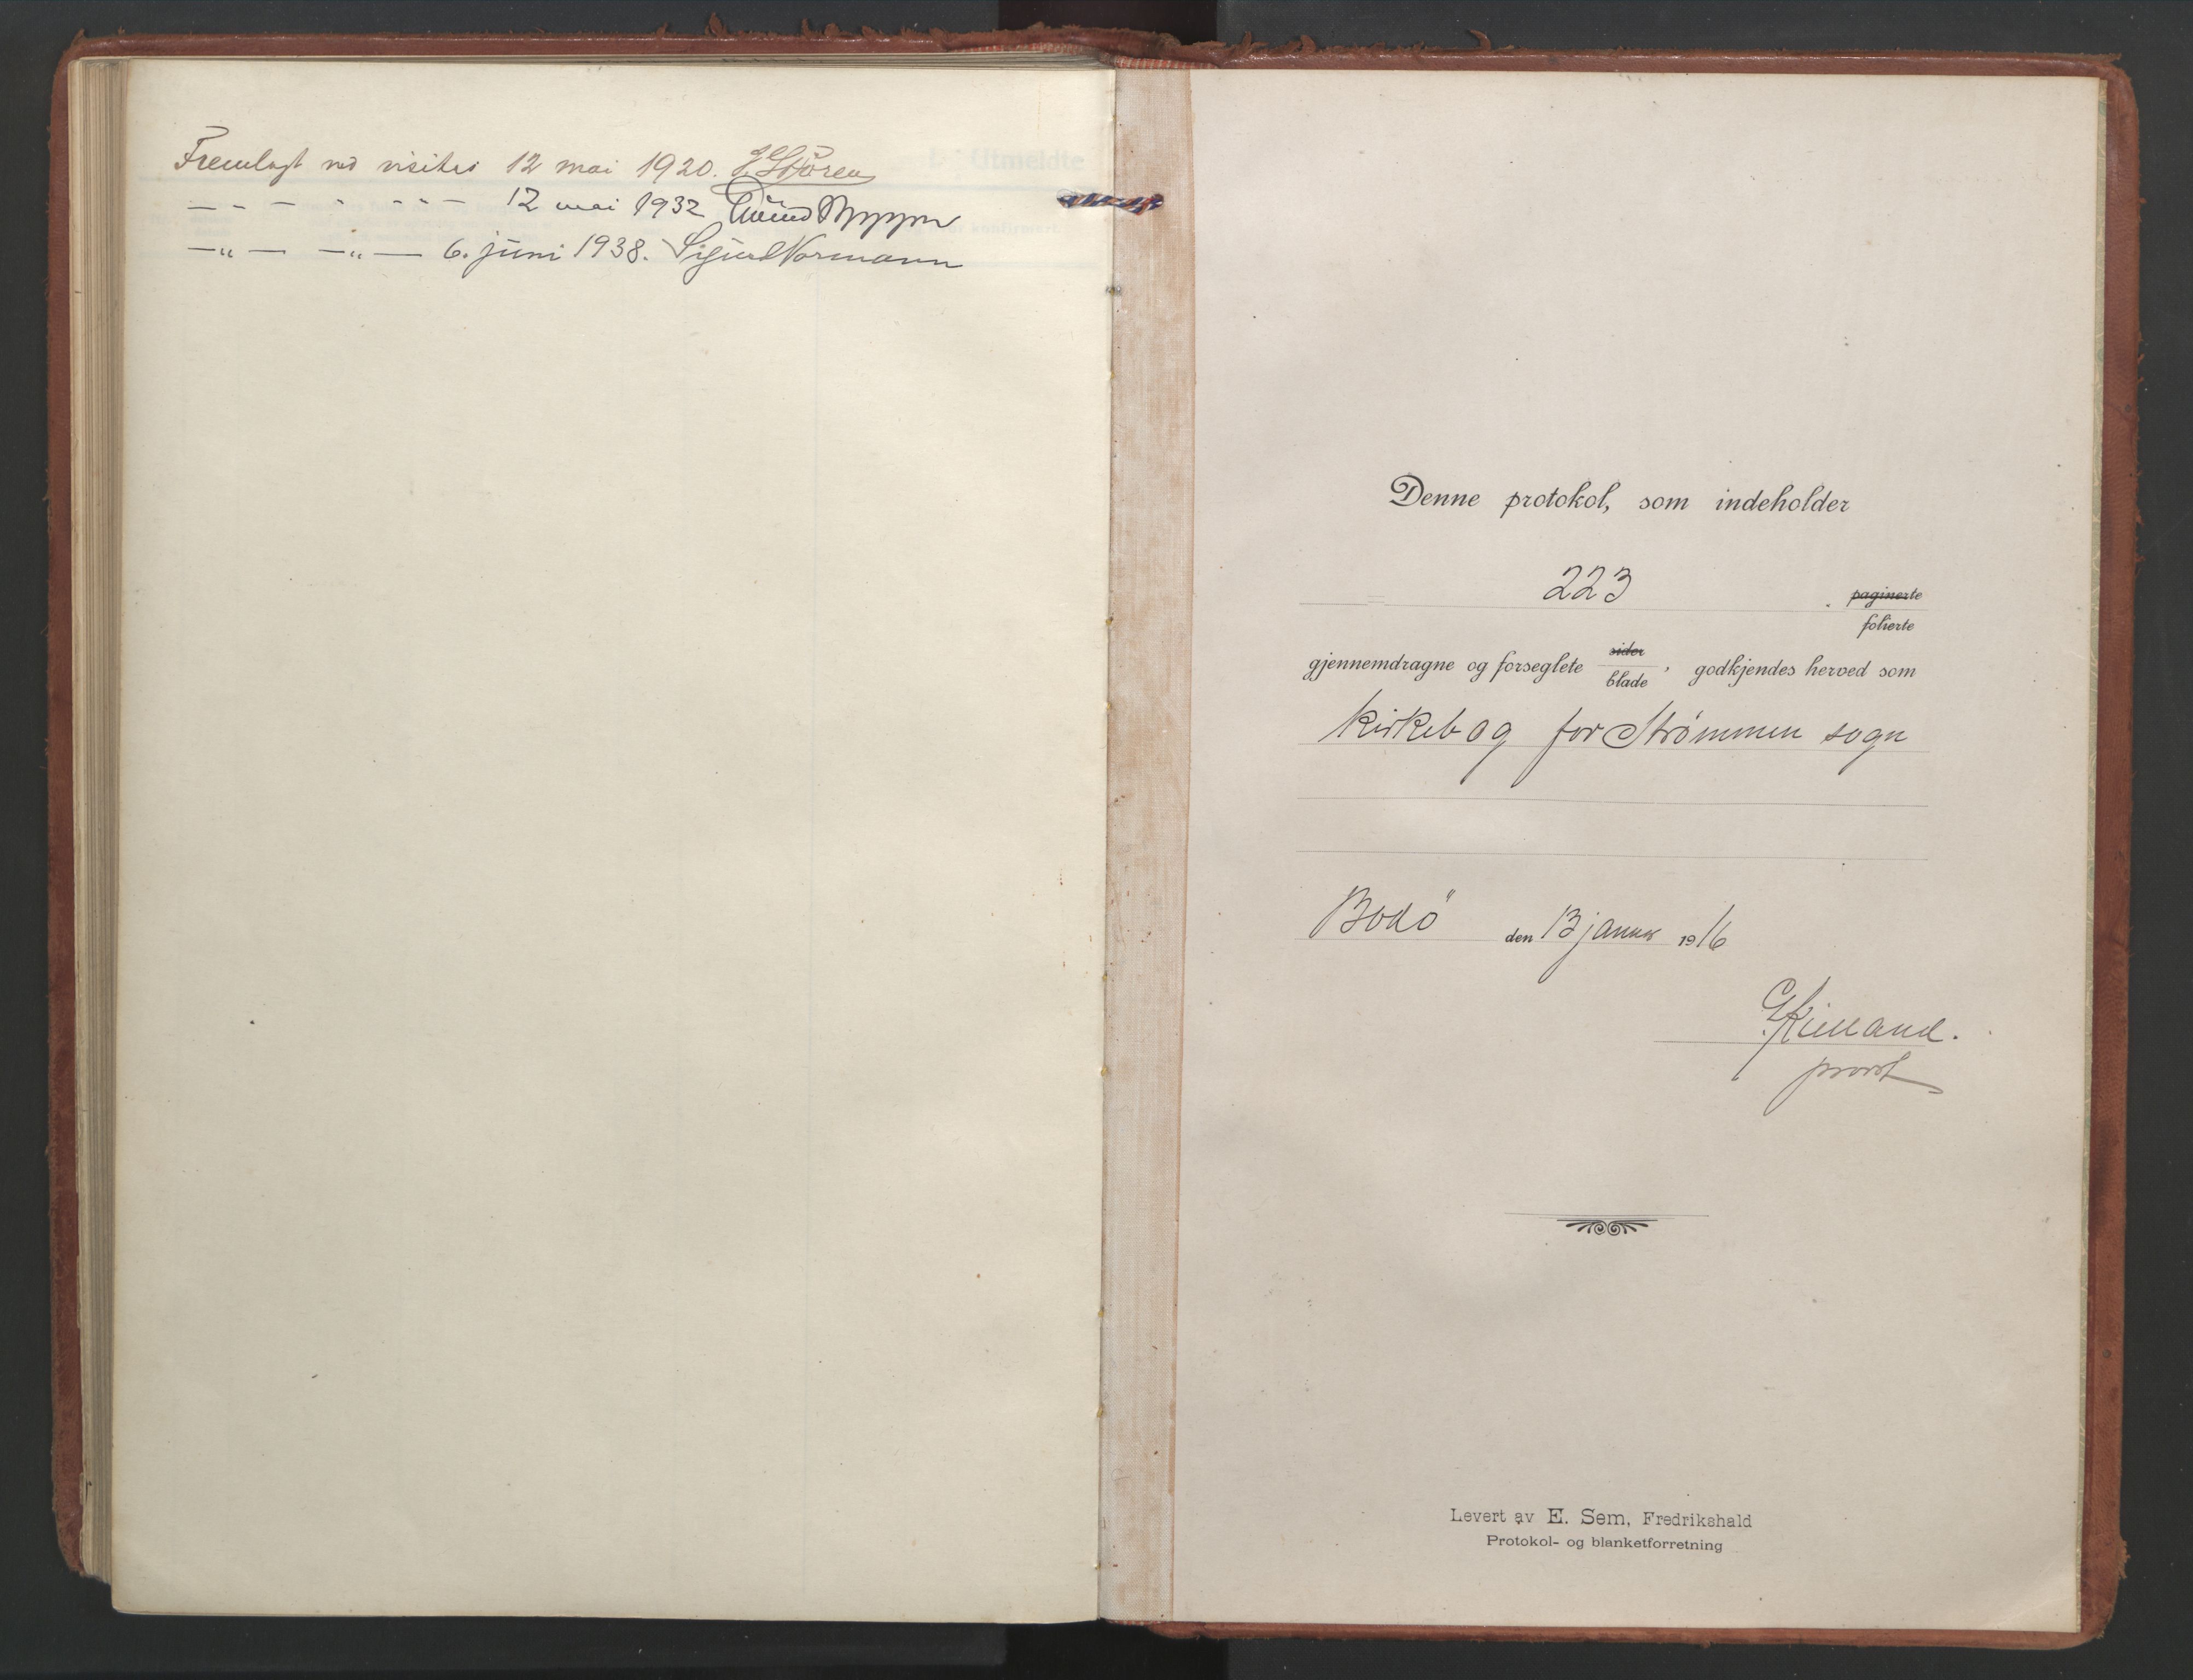 Fremlagt ved visitas 12 mai 1920. J. Støren
— " — " — 12 mai 1932 Eivind Berggrav
— " — — " — 6. juni 1938. Sigurd Normann
Denne protokol, som indeholder
223 paginerte
folierte
gjennemdragne og forseglete sider
blade, godkjendes herved som
Kirkebog for Strømmen sogn
Bodö den 13 januar 1916
G Kielland.
provst
Levert av E. Sem, Fredrikshald
Protokol- og blanketforretning